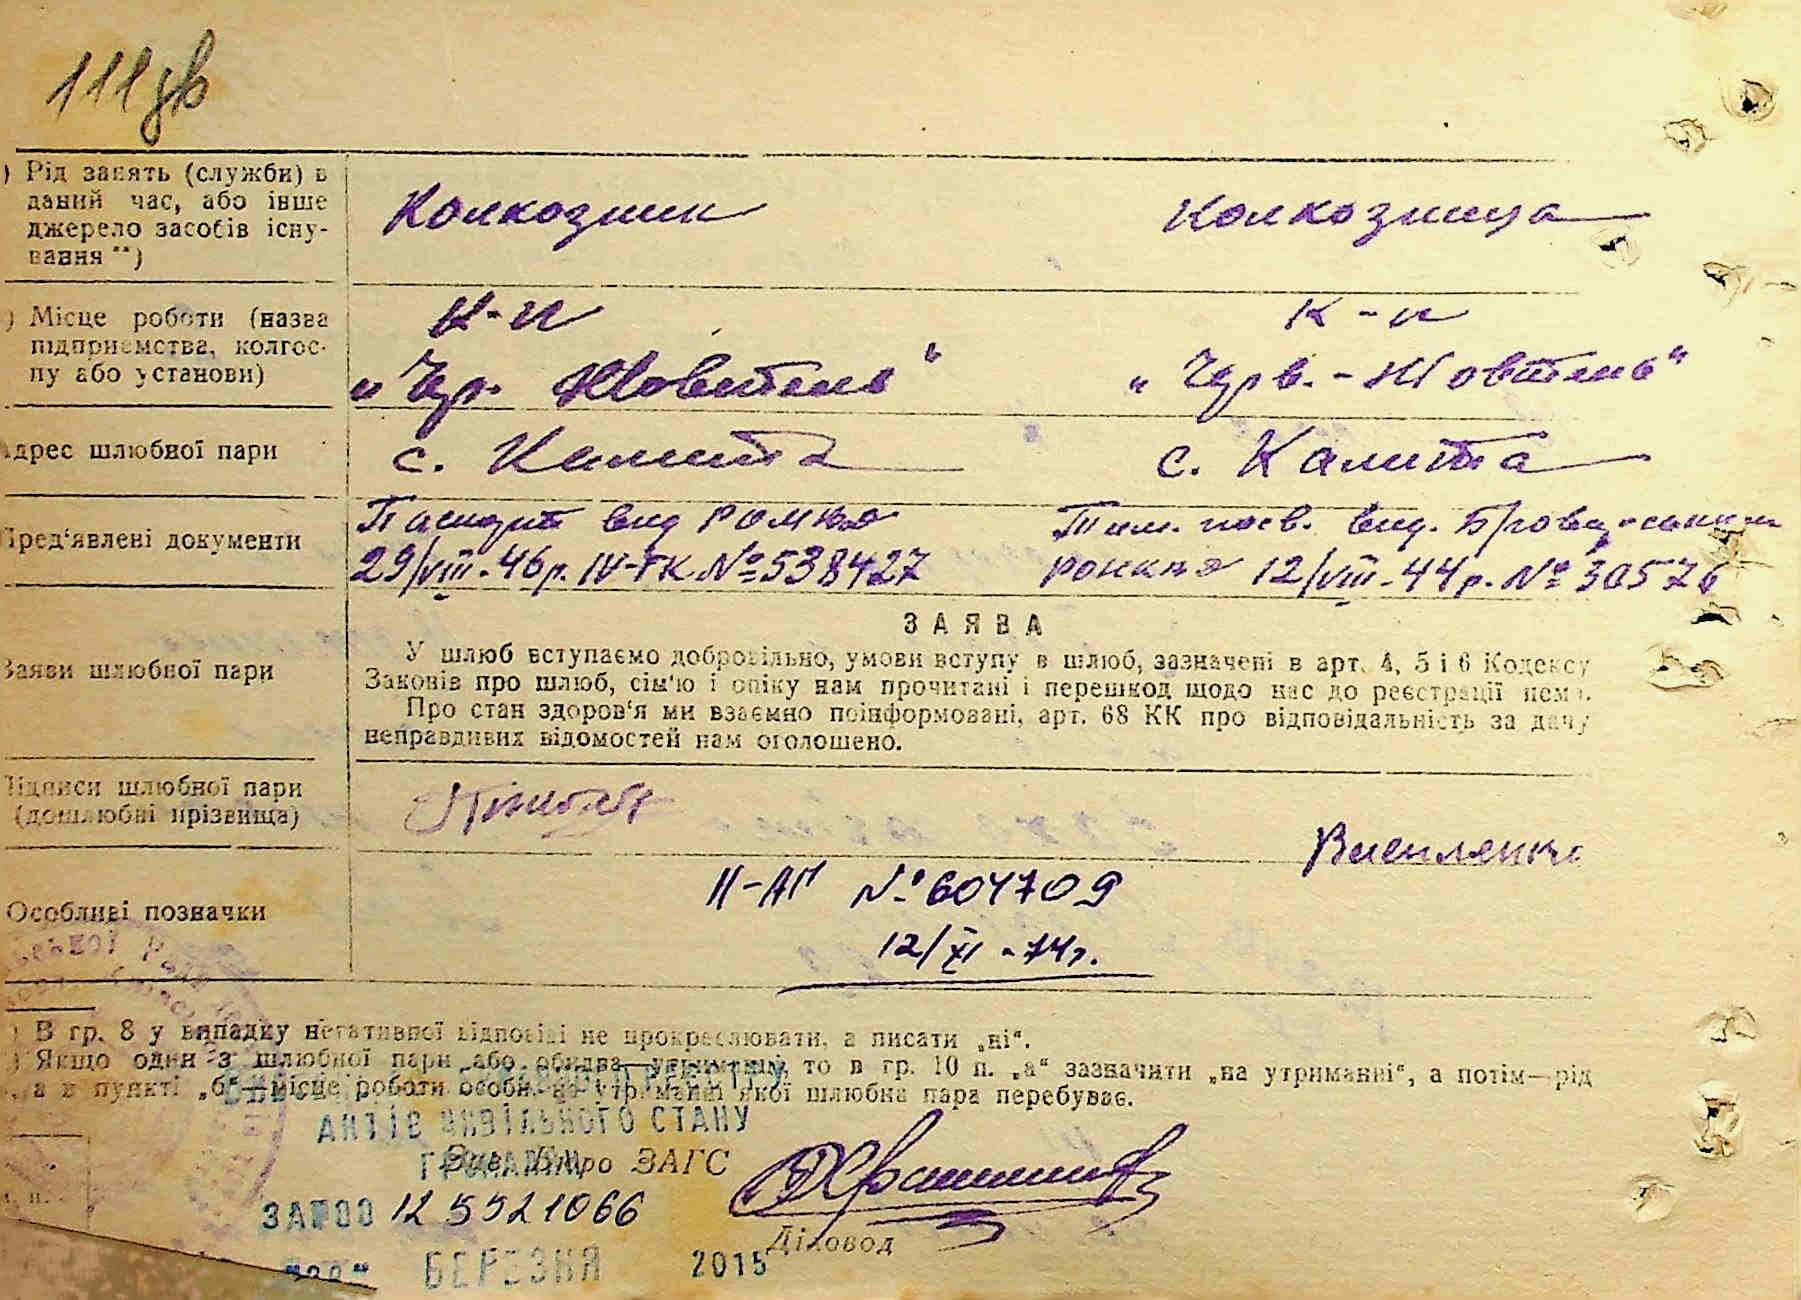 111 зв
) Рід занять (служби) в
даний час, або інше
джерело засобів існу-
вання **)
Колхозник
Колхозница
) Місце роботи (назва
підприємства, колгос-
пу або установи)
К-п
„Чер. Жовтень“
К-п
„Черв.-Жовтень“
Адрес шлюбної пари
с. Калита
с. Калита
Пред'явлені документи
Паспорт вид РОМ
29/VIII-46р. IV-ГК №538427
Тим. посв. вид. Броварським
12/VIII-44р. №30576
Заяви шлюбної пари
ЗАЯВА
У шлюб вступаємо добровільно, умови вступу в шлюб, зазначені в арт. 4, 5 і 6 Кодексу
Законів про шлюб, сім'ю і опіку нам прочитані і перешкод щодо нас до реєстрації нема.
Про стан здоров'я ми взаємно поінформовані, арт. 68 КК про відповідальність за дачу
неправдивих відомостей нам оголошено.
Підписи шлюбної пари
(дошлюбні прізвища)
Особливі позначки
II-АП №604709
12/XI-74г.
) В гр. 8 у випадку негативної відповіді не прокреслювати, а писати „ні“.
) Якщо один з шлюбної пари або обидва—утриманці, то в гр. 10 п. „а“ зазначити „на утриманні“, а потім—рід
, а в пункті „б“—місце роботи особи, на утриманні якої шлюбна пара перебуває.
АКТІВ ЦИВІЛЬНОГО СТАНУ
ГРОМАДЯН
Зав. Бюро ЗАГС
ЗА №00 125521066
Діловод
БЕРЕЗНЯ 2015